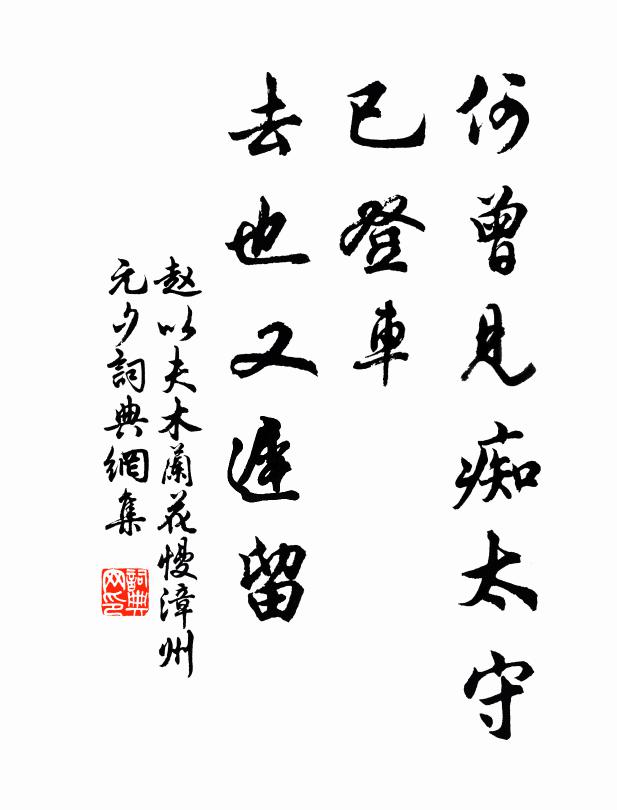 何曾見痴太守
已登車
去也又遲留
赵以夫木蘭花慢漳州
元夕詞典網集
詞典
网印